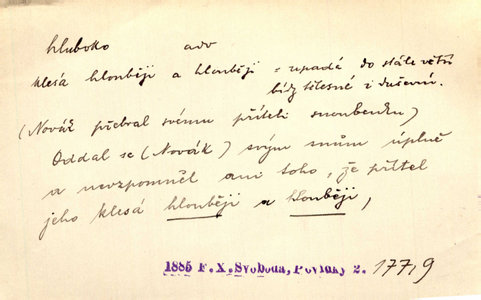 hluboko adv
klesá hlouběji a hlouběji = upadá do stále větší
bídy tělesné i duševní.
(Novák přebral svému příteli snoubenku)
Oddal se (Novák) svým snům úplně
a nevzpomněl ani toho, že přítel
jeho klesá hlouběji a hlouběji,
1885 F. X. Svoboda, Povídky 2. 177,9